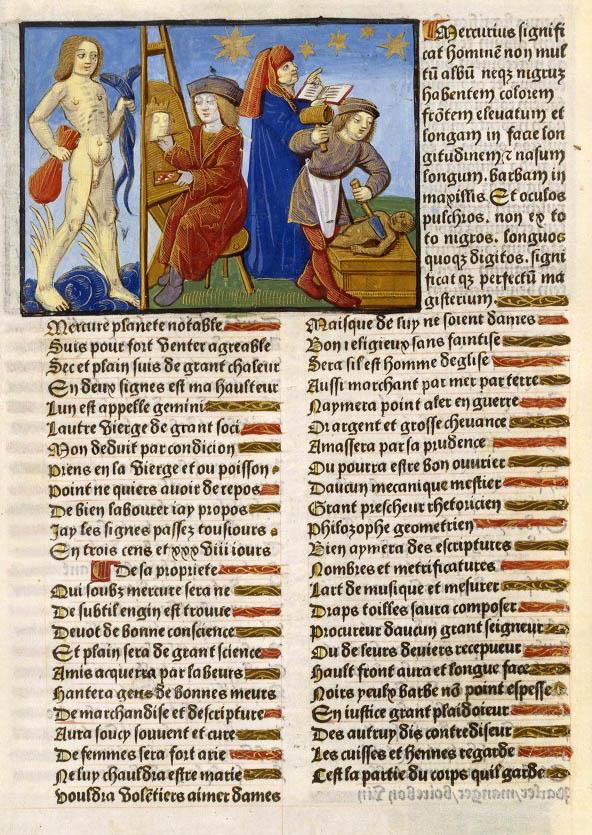 Mercurius signifi
cat hominē non mul
tū albū neqꝫ nigruꝫ
habentem colorem
frōtem eleuatum et
longam in facie lon
gitudinem, ⁊ nasum
longum. barbam in
maxillis. Et oculos
pulchros. non ex to
to nigros. longuos
quoqꝫ digitos. signi
ficat qꝫ perfectū ma
gisterium.
Mercure planete notable
Suis pour fort venter agreable
Sec et plain suis de grant chaleur
En deux signes est ma haulteur
Lun est appelle gemini
Lautre vierge de grant soci
Mon deduit par condicion
Prens en la vierge et ou poisson
Point ne quiers auoir de repos
De bien labourer iay propos
Jay les signes passez tousiours
En trois cens et xxx viii iours
De sa propriete
Qui soubz mercure sera ne
De subtil engin est trouue
Deuot de bonne conscience
Et plain sera de grant science
Amis acquerra par labeurs
Hantera gens de bonnes meurs
De marchandise et descripture
Aura soucy souuent et cure
De femmes sera fort arie
Ne luy chauldra estre marie
Vouldra volētiers aimer dames
Mais que de luy ne soient dames
Bon religieux sans faintise
Sera sil est homme deglise
Aussi marchant par mer par terre
Naymera point aler en guerre
Or argent et grosse cheuance
Amassera par sa prudence
Ou pourra estre bon ouurier
Daucun mecanique mestier
Grant prescheur rhetoricien
Philozophe geometrien
Bien aymera des escriptures
Nombres et metrificatures
Lart de musique et mesurer
Draps toilles saura composer
Procureur daucun grant seigneur
Ou de leurs deniers recepueur
Hault front aura et longue face
Noirs yeulx barbe nō point espesse
En iustice grant plaidoieur
Des autruy dis contrediseur
Les cuisses et hennes regarde
Cest la partie du corps quil garde